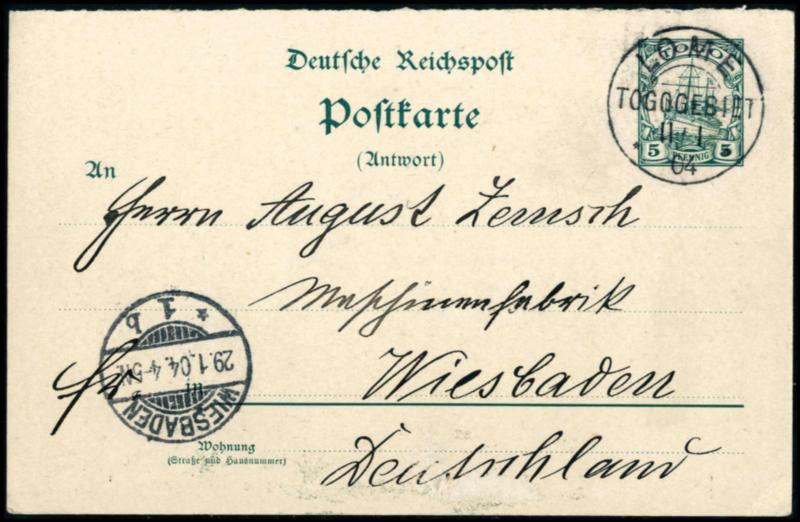 Deutsche Reichspost
Postkarte
(Antwort)
An
TOGO
5 PFENNIG 5
LOME
TOGOGEBIET
11/1
04
Herrn August Zemsch
Maschinenfabrik
fr
Wiesbaden
in
Deutschland
Wohnung
(Straße und Hausnummer)
WIESBADEN
29.1.04. 4-5N.
* 1 b